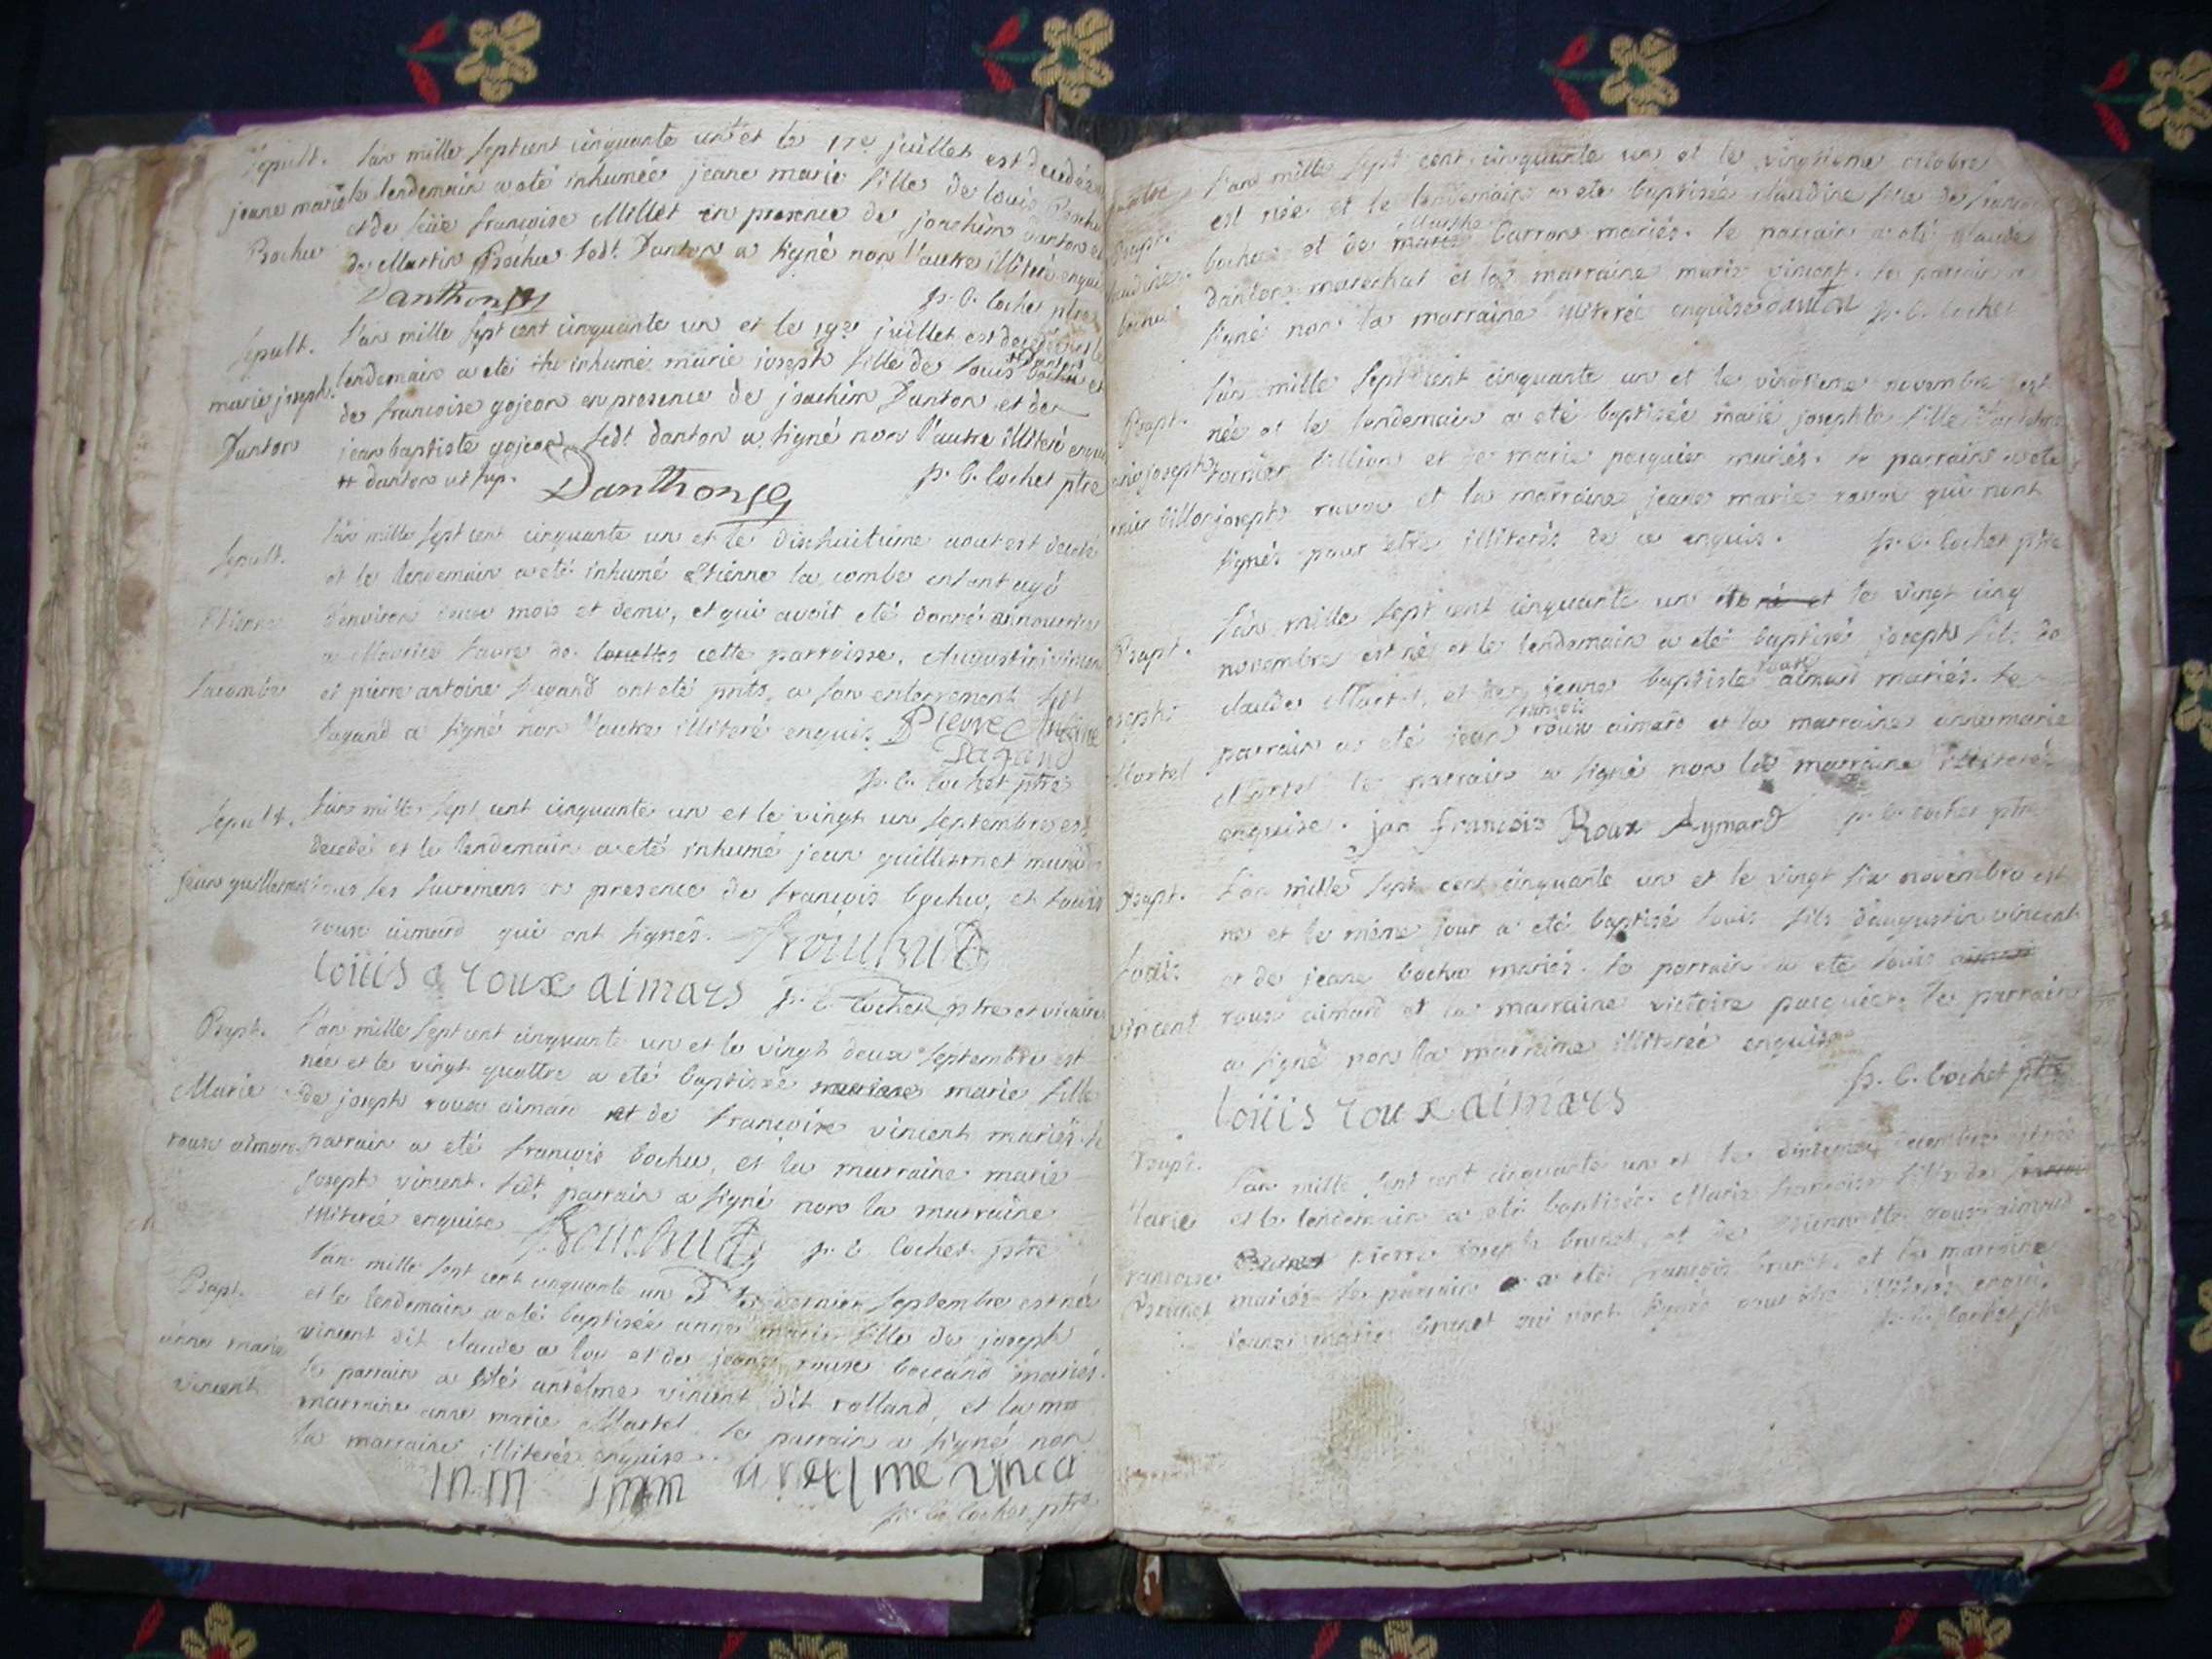 Sepult. L'an mille sept cent cinquante un et le 17e juillet est decedée
jeane marie le lendemain a eté inhumée jeane marie fille de louis Bochu
Bochu et de feüe francoise Millet en presence de joachim danton et
de Martin Bochu led.t Danton a signé non l'autre illiteré enquis
Danthon p. C. Cochet ptre
Sepult. L'an mille sept cent cinquante un et le 19e juillet est decedée et le
marie joseph. lendemain a eté inhumé marie joseph fille de louis Bochu et
Danton de francoise gojeon en presence de joachim Danton et de
jean baptiste gojeon led.t danton a signé non l'autre illiteré enquis
danton ut sup. Danthon p. C. Cochet ptre
Sepult. L'an mille sept cent cinquante un et le dixhuitieme aout est decedé
et le lendemain a eté inhumé Etienne la combe enfant agé
Etienne d'environ mois et demi, et qui avoit eté donné a nourrir
a Maurice favre de cette parroisse, Augustin vincent
Lacombe et pierre antoine Dagand ont eté pnts. a son enterrement led.t
Dagand a signé non l'autre illiteré enquis Pierre Antoine
Dagand
p. C. Cochet ptre
Sepult. L'an mille sept cent cinquante un et le vingt un septembre est
decedé et le lendemain a eté inhumé jean guillermet muni de
jean guillermet tous les sacremens en presence de francois bochu, et louis
roux aimard qui ont signés.
loüis a roux aimars p. C. Cochet ptre et vicaire
Bapt. L'an mille sept cent cinquante un et le vingt deux septembre est
née et le vingt quattre a eté baptisée marie fille
Marie de joseph roux aimard et de francoise vincent mariés. le
roux aimard. parrain a eté francois bochu, et la marraine marie
joseph vincent. led.t parrain a signé non la marraine
illiterée enquise p. C. Cochet ptre
L'an mille sept cent cinquante un le dernier septembre est née
Bapt. et le lendemain a eté baptisée anne marie fille de joseph
anne marie vincent dit claude a loy et de jeane roux boccand mariés.
vincent le parrain a eté antelme vincent dit rolland, et la ma
marraine anne marie Martel. le parrain a signé non
la marraine illiterée enquise.
antelme vinca
p. C. Cochet ptre
L'an mille sept cent cinquante un et le vingtieme octobre
Bapt. est née et le lendemain a eté baptisée claudine fille de francois
claudine bochu et de marthe barron mariés. le parrain a eté claude
bochu danton marechal et la marraine marie vincent. le parrain a
signé non la marraine illiterée enquise danton p. C. Cochet
L'an mille sept cent cinquante un et le vingtieme novembre est
Bapt. née et le lendemain a eté baptisée marie josephte fille
marie joseph billion et de marie pasquier mariés. le parrain a eté
joseph ravoi et la marraine jeane marie ravoi qui n'ont
signés pour etre illiterés de ce enquis. p. C. Cochet ptre
L'an mille sept cent cinquante un et le vingt cinq
Bapt. novembre est né et le lendemain a eté baptisé joseph fils de
claude Martel, et de jeane baptiste roux aimard mariés. le
joseph parrain a eté jean francois roux aimard et la marraine anne marie
Martel Martel le parrain a signé non la marraine illiterée
enquise. jan francois Roux Aymard p. C. Cochet ptre
Bapt. L'an mille sept cent cinquante un et le vingt six novembre est
né et le même jour a eté baptisé louis fils d'augustin vincent
louis et de jeane bochu mariés. le parrain a eté louis
vincent roux aimard et la marraine victoire pasquier. le parrain
a signé non la marraine illiterée enquise
p. C. Cochet ptre
loüis roux aimars
Bapt. L'an mille sept cent cinquante un et le dixieme decembre est née
Marie et le lendemain a eté baptisée Marie francoise fille de
francoise pierre joseph brunet, et de Etiennette roux aimard
Brunet mariés le parrain a eté francois brunet, et la marraine
marie brunet qui n'ont signés pour être illiterés enquis
p. C. Cochet ptre